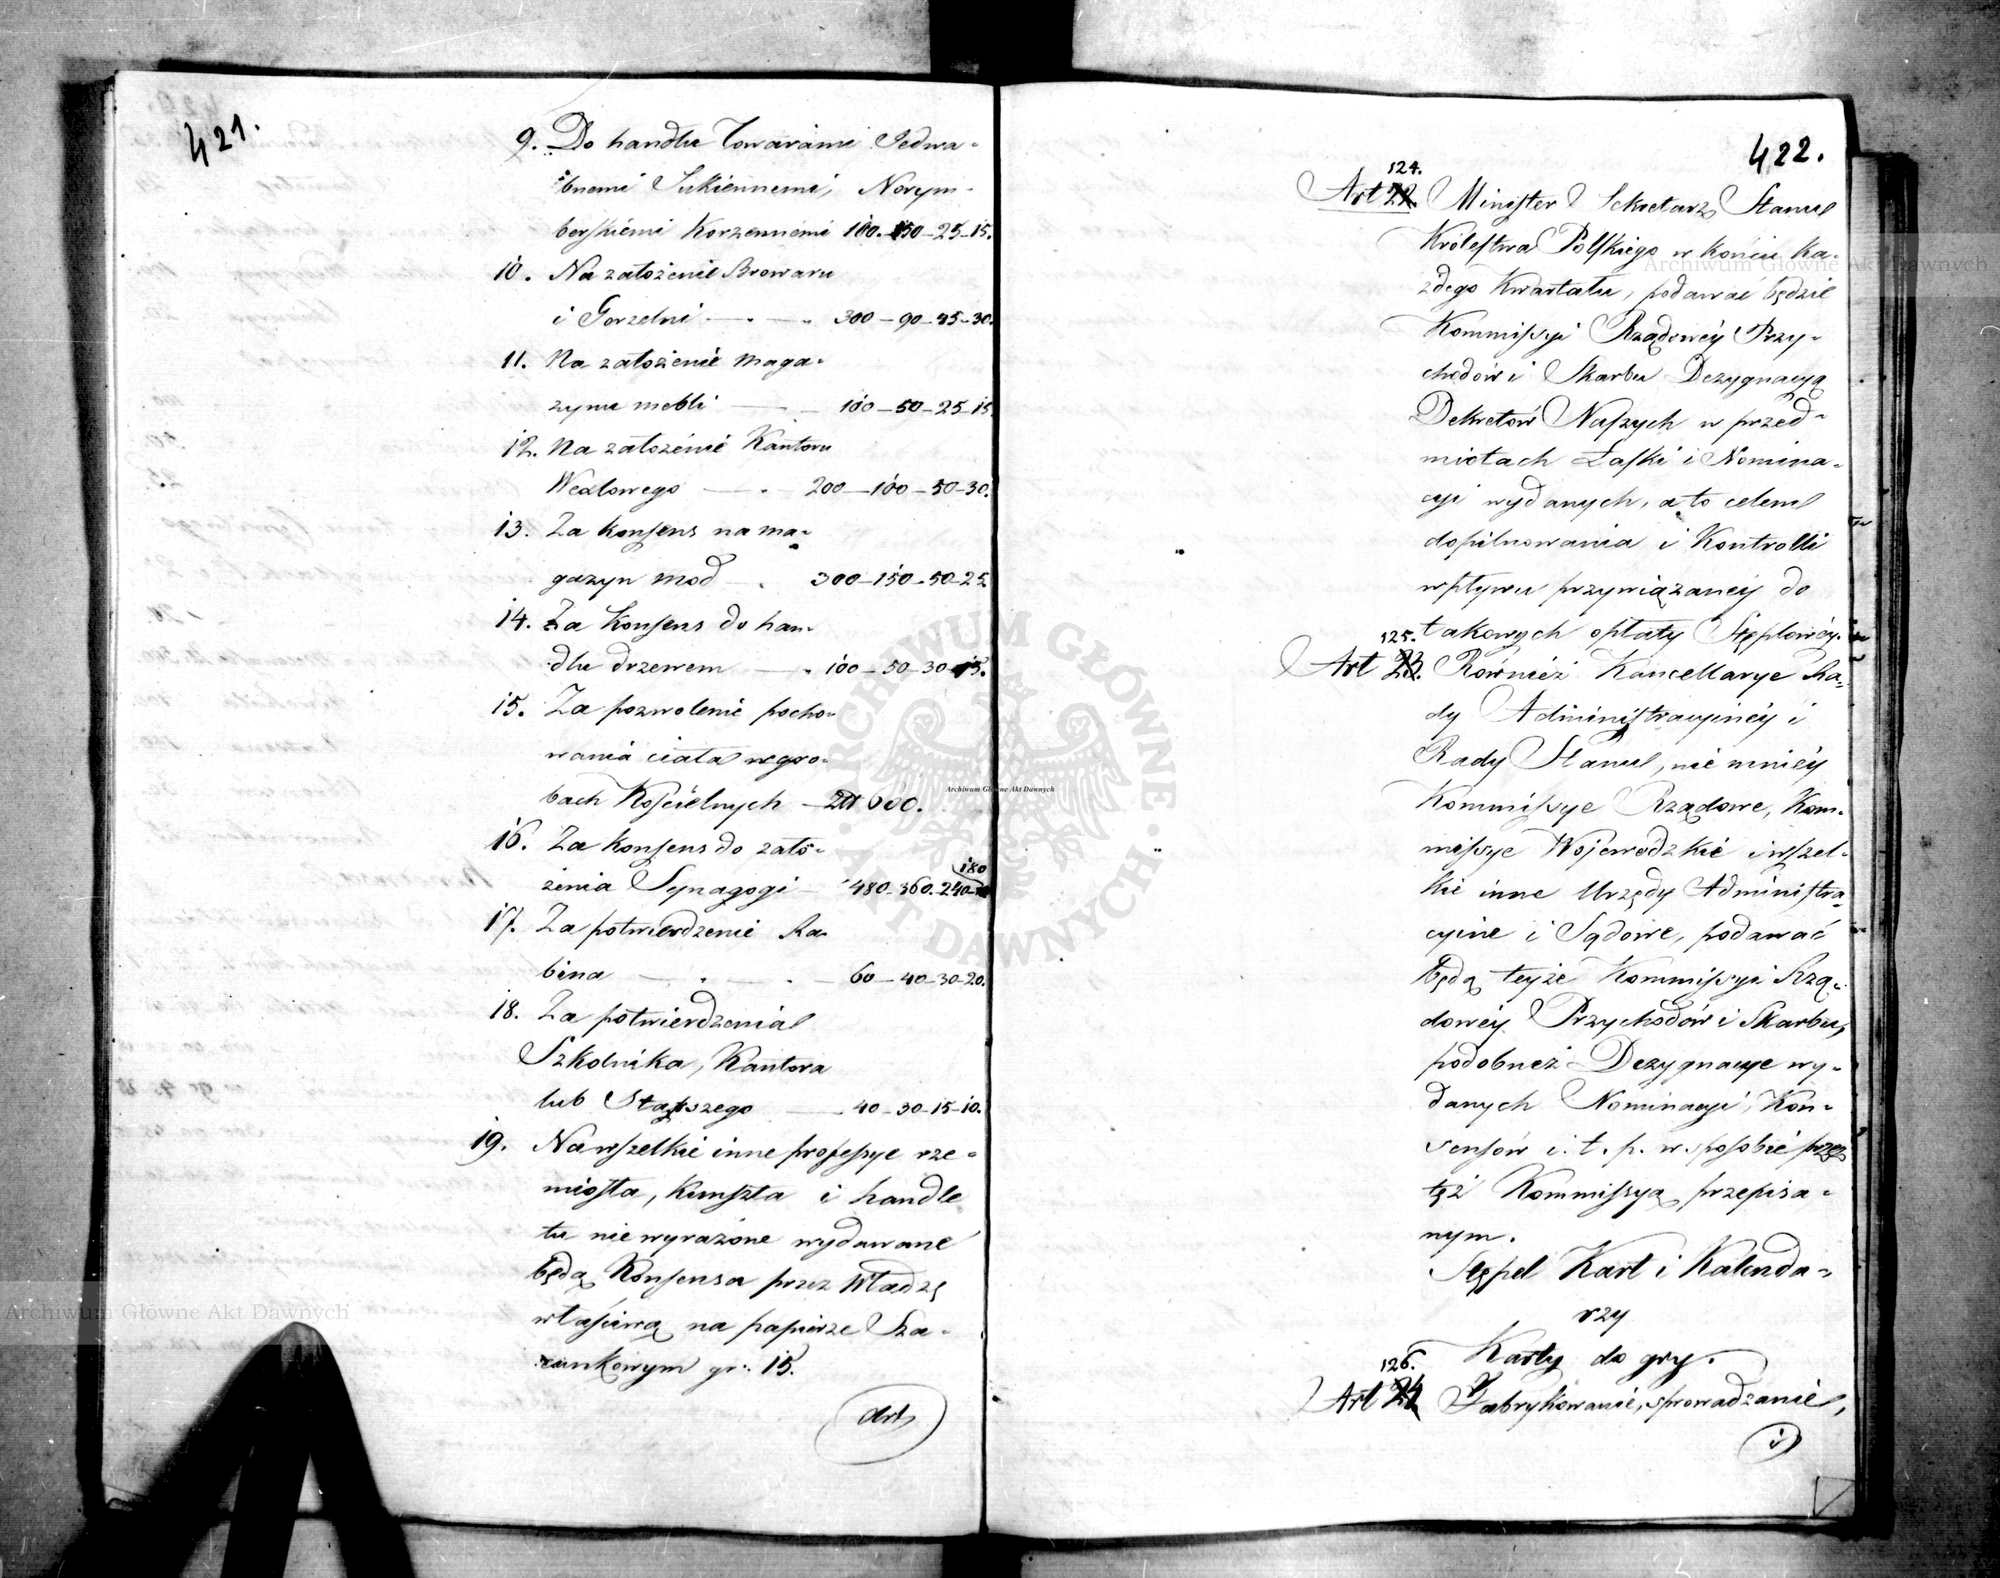 421.
9. Do handlu Towarami Jedwa-
bnemi Sukiennemi, Norym-
berskiemi Korzennemi 100.-50-25-15.
10. Na założenie Browaru
i Gorzelni - - - 300-90-45-30.
11. Na założenie maga-
zynu mebli - - 100-50-25-15
12. Na założenie Kantoru
Wexlowego - - 200-100-50-30.
13. Za konsens na ma-
gazyn mód - 300-150-50-25
14. Za Konsens do han-
dlu drzewem - - 100-50-30-15.
15. Za pozwolenie pocho-
wania ciała w gro-
bach Kościelnych - 600.
16. Za konsens do zało-
180
żenia Synagogi - 480-360-240-
17. Za potwierdzenie Ra-
bina - - - 60-40-30-20.
18. Za potwierdzenia
Szkolnika, Kantora
lub Starszego - 40-30-15-10.
19. Na wszelkie inne professye rze-
miosła, Kunszta i handle
tu niewyrażone wydawane
będą Konsensa przez Władzę
właściwą na papierze Sza-
cunkowym gr: 15.
Art
422.
124.
Art 22. Minister Sekretarz Stanu
Królestwa Polskiego w końcu ka-
żdego Kwartału, podawać będzie
Kommissyi Rządowéy Przy-
chodów i Skarbu Dezygnacyą
Dekretów Naszych w przed-
miotach Łaski i Nomina-
cyi wydanych, a to celem
dopilnowania i Kontrolli
wpływu przywiązanéy do
takowych opłaty Stęplowéy.
125.
Art 23. Również Kancellarye Ra-
dy Administracyinéy i
Rady Stanu, nie mniéy
Kommissye Rządowe, Kom-
missye Wojewódzkie i wszel-
kie inne Urzędy Administra-
cyine i Sądowe, podawać
będą teyże Kommissyi Rzą-
dowéy Przychodów i Skarbu,
podobneż Dezygnacye wy-
danych Nominacyi, Kon-
sensów i. t. p. w sposobie przez
tęż Kommissyą przepisa-
nym.
Stępel Kart i Kalenda-
rzy
Karty do gry.
126.
Art 24 Fabrykowanie, sprowadzanie,
i
Archiwum Główne Akt Dawnych
Archiwum Główne Akt Dawnych
Archiwum Główne Akt Dawnych
ARCHIWUM GŁÓWNE · AKT DAWNYCH ·